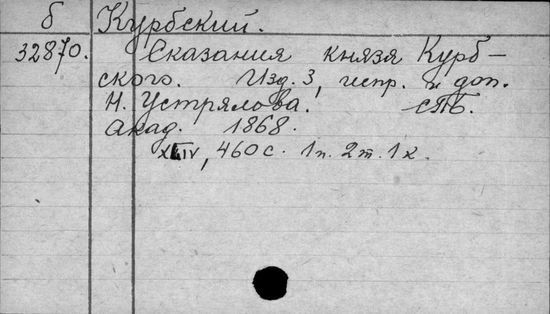 б Курбский.
32870. Сказания князя Курб-
ского. Изд. 3, испр. и доп.
Н. Устрялова. СПб.
Акад. 1868.
460 с. 1 п. 2 т. 1 к.